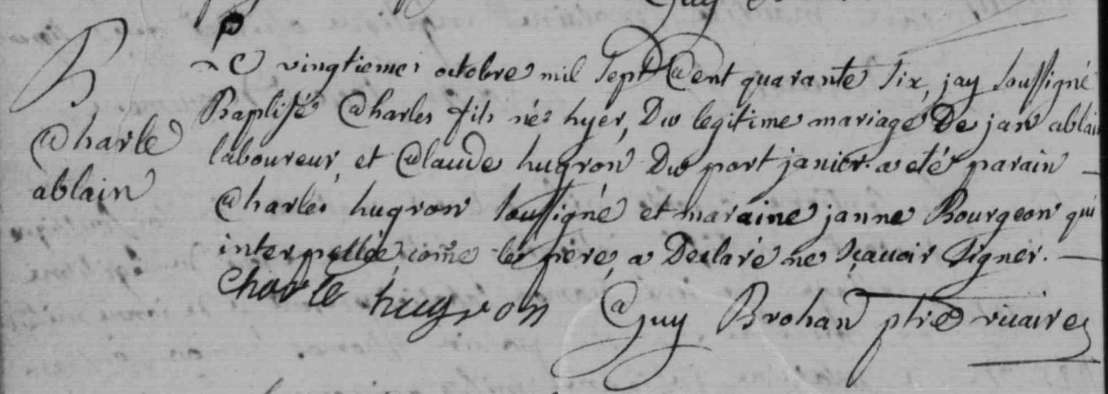 B
Charle
ablain
Le vingtieme octobre mil sept Cent quarante six, jay soussigné
Baptisé Charles fils né hyer, Du legitime mariage De jan ablain
laboureur, et Claude hugron Du port janier. a eté parain
Charles hugron soussigné et maraine janne Bourgeon qui
interpellée come le pere, a Declaré ne sçavoir signer.
Charle hugron Guy Brohan ptre vicaire